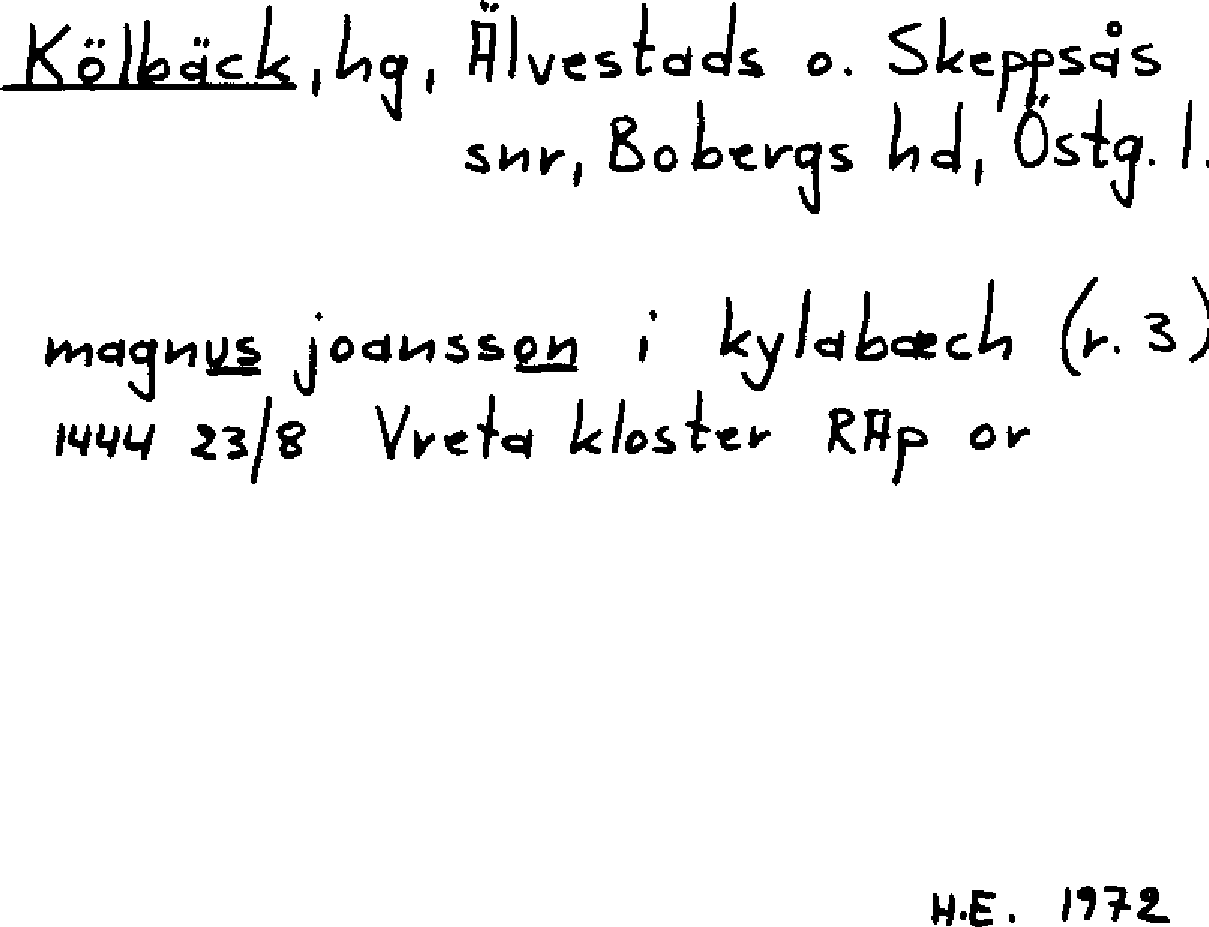 Kölbäck, hg, Älvestads o. Skeppsås
snr, Bobergs hd, Östg. l.
magnus joansson i kylabæch (r. 3)
1444 23/8 Vreta kloster RAp or
H.E. 1972